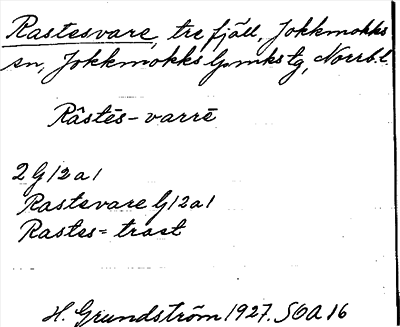 Rastesvare, tre fjäll, Jokkmokks
sn, Jokkmokks lpmks tg, Norrb. l.
Râstēs-varrē
2 G 12 a 1
Rastevare G 12 a 1
Rastes = trast
H. Grundström 1927. SOA 16